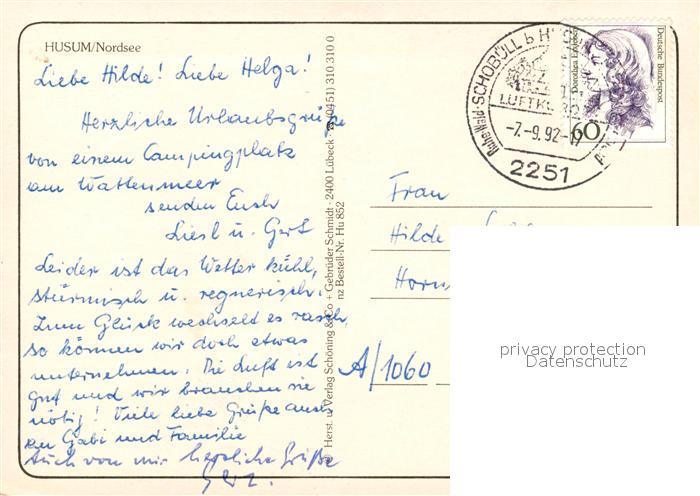 HUSUM/Nordsee
Liebe Hilde! Liebe Helga!
Herzliche Urlaubsgrüße
von einem Campingplatz
am Wattenmeer
senden Euch
Liesl u. Gert
Leider ist das Wetter kühl,
stürmisch u. regnerisch.
Zum Glück wechselt es rasch,
so können wir doch etwas
unternehmen. Die Luft ist
gut und wir brauchen sie
nötig! Viele liebe Grüße auch
an Gabi und Familie
Auch von mir herzliche Grüße
Herst. u. Verlag Schöning & Co + Gebrüder Schmidt · 2400 Lübeck ☎ (0451) 310 310 0
nz Bestell-Nr. Hu 852
SCHOBÜLL b
LUFTKU
-7.-9.92-17
2251
Deutsche Bundespost
60
Frau
Hilde
A/1060
privacy protection
Datenschutz